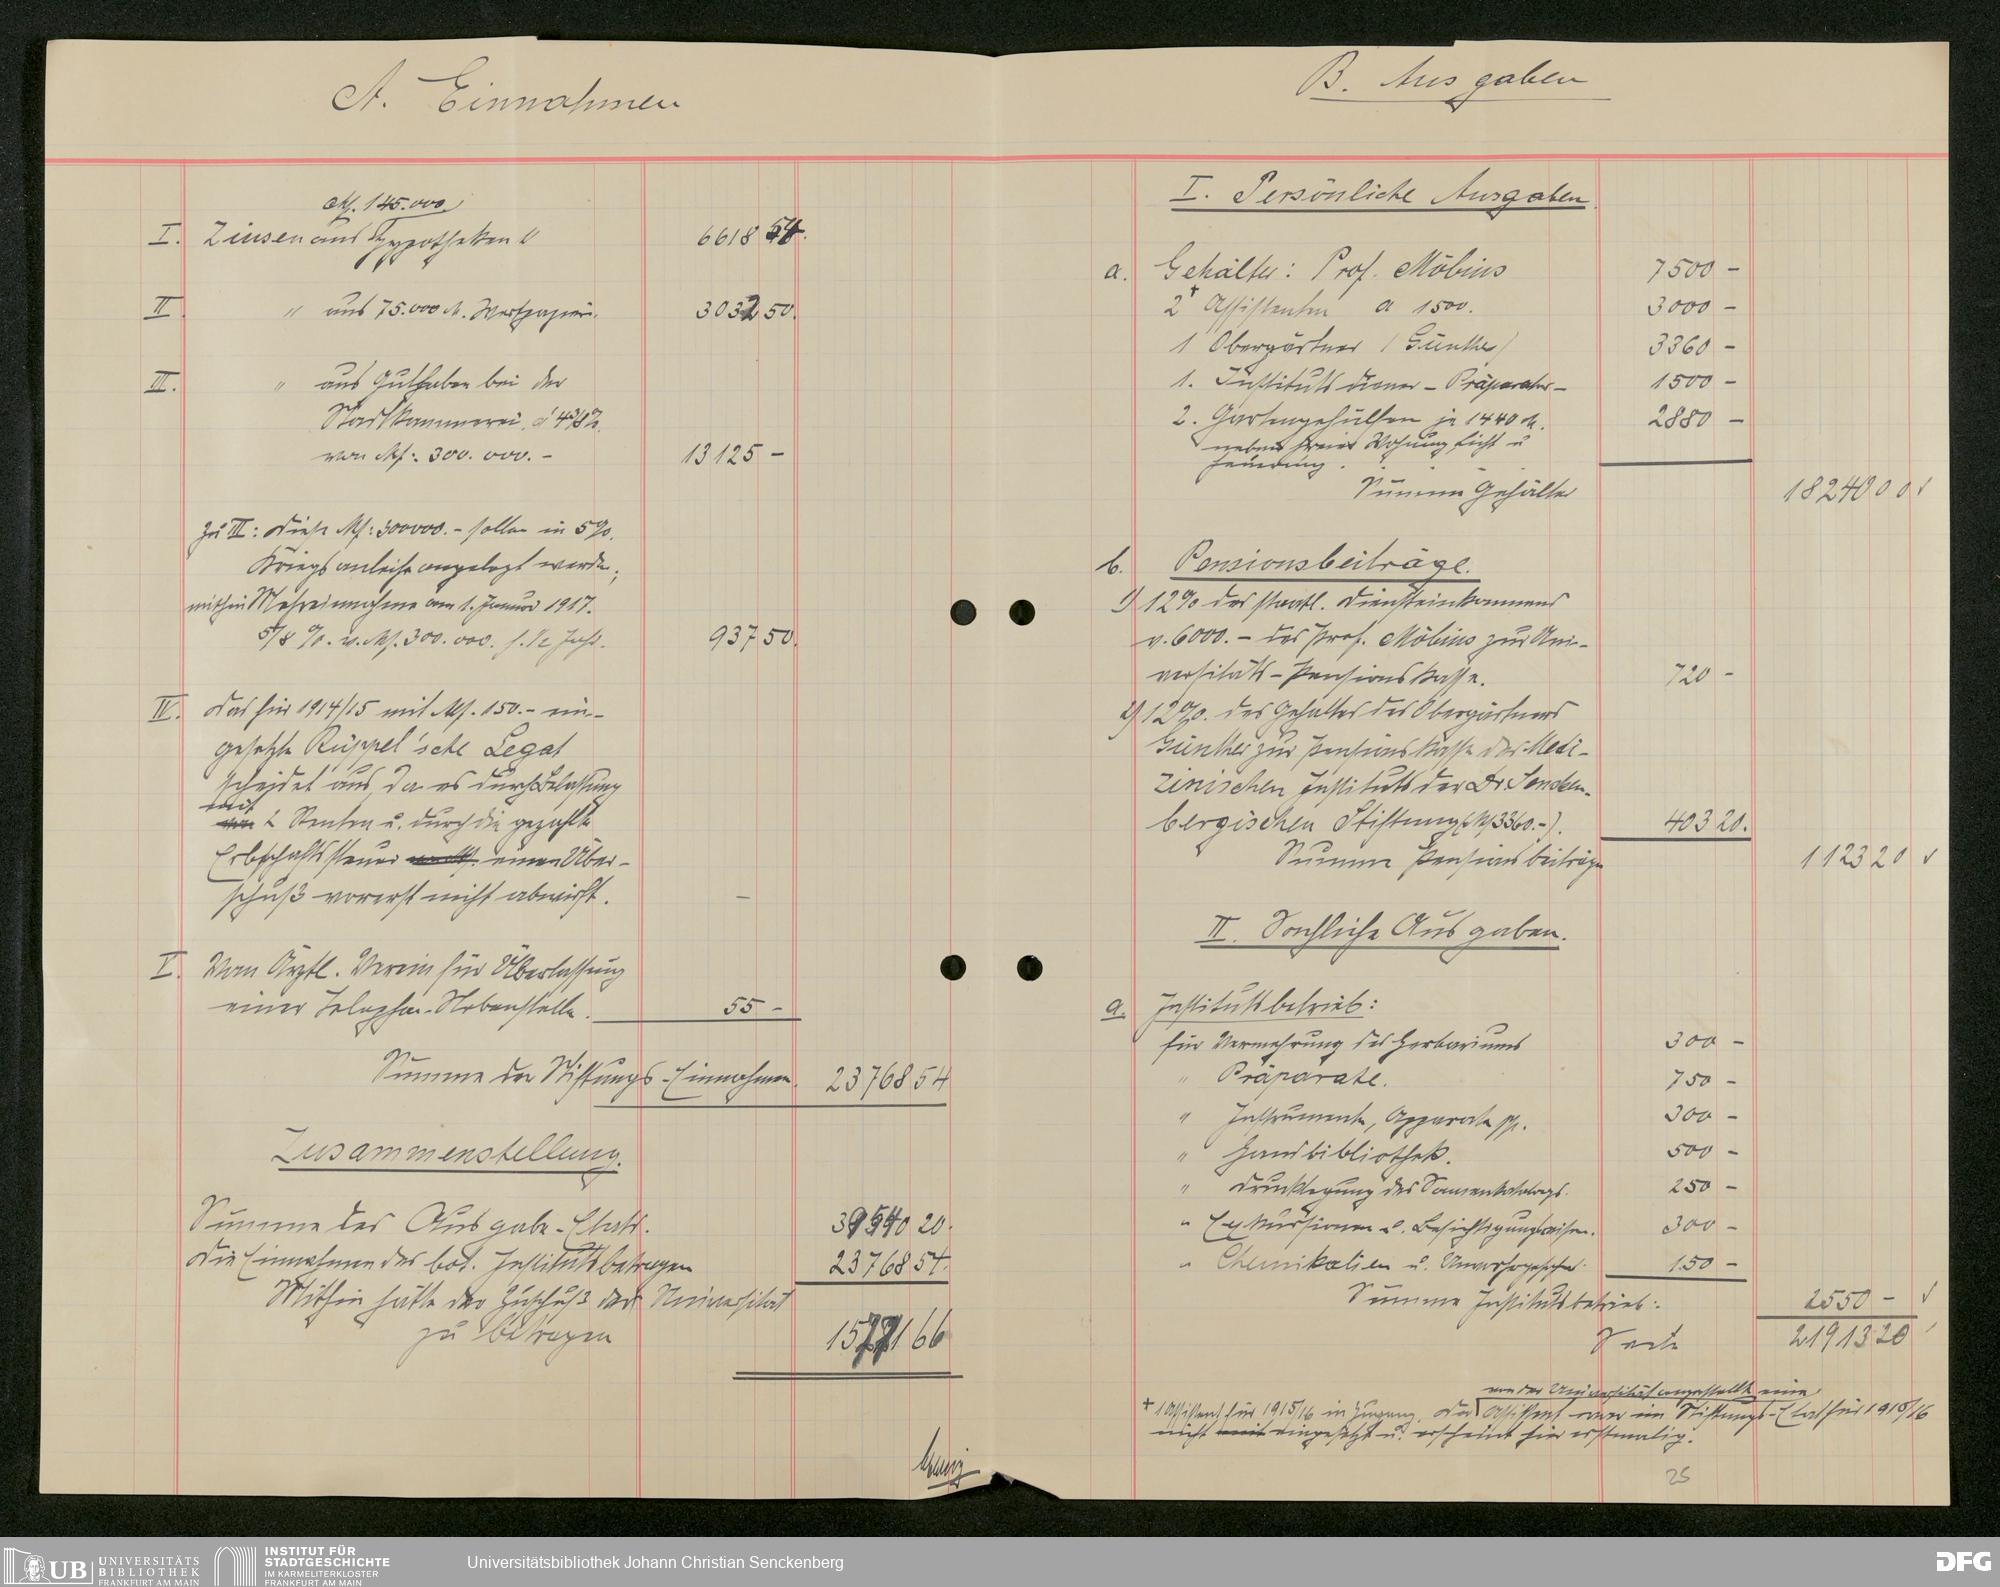 A. Einnahmen
M. 145.000.
I. Zinsen aus Hypotheken 6618 54.
II. " aus 75.000 M. Wertpapiere. 3032 50.
III. " aus Guthaben bei der
Stadtkämmerei à 4 3/8 %.
von M: 300.000.- 13125 -
Zu III: Diese M: 300000.- sollen in 5%.
Kriegsanleihe angelegt werden;
mithin Mehreinnahme am 1. Januar 1917.
5/8 %. v. M. 300.000. f. 1/2 Jahr. 937 50.
IV. Das für 1914/15 mit M. 150.- ein-
gesetzte Rüppel'sche Legat
scheidet aus, da es durch Belastung
mit
2 Renten u. durch die gezahlte
Erbschaftssteuer einen Über-
schuß vorerst nicht abwirft. -
V. Vom Ärztl. Verein für Überlassung
einer Telephon-Nebenstelle. 55 -
Summe der Stiftungs-Einnahmen. 23768 54
Zusammenstellung.
Summe des Ausgabe-Etats. 39540 20.
Die Einnahmen des bot. Instituts betragen 23768 54.
Mithin hätte der Zuschuß der Universität
zu betragen 15771 66
B. Ausgaben
I. Persönliche Ausgaben.
a. Gehälter: Prof. Möbius 7500 -
2+ Assistenten à 1500. 3000 -
1 Obergärtner (Günther) 3360 -
1. Institutsdiener-Präparator- 1500 -
2. Gartengehülfen je 1440 M. 2880 -
neben freier Wohnung Licht u
Feuerung.
Summe Gehälter 18240 00 ✓
b. Pensionsbeiträge.
1) 12% des staatl. Diensteinkommens
v. 6000.- des Prof. Möbius zur Uni-
versitäts-Pensionskasse. 720 -
2) 12%. des Gehaltes des Obergärtners
Günther zur Pensionskasse des Medi-
zinischen Instituts der Dr. Sencken-
bergischen Stiftung (M 3360.-). 403 20.
Summe Pensionsbeiträge 1123 20 ✓
II. Sachliche Ausgaben.
a. Institutsbetrieb:
für Vermehrung des Herbariums 300 -
" Präparate. 750 -
" Instrumente, Apparate pp. 300 -
" Handbibliothek. 500 -
" Drucklegung des Samenkatalogs. 250 -
" Exkursionen u. Besichtigungsreisen. 300 -
" Chemikalien u. 150 -
Summe Institutsbetrieb: 2550 - ✓
Seite 21913 20
von der Universität angestellte eine
+ 1 Assistent für 1915/16 in Zugang. Der Assistent war im Stiftungs-Etat für 1915/16
nicht mit eingesetzt u. erscheint hier erstmalig.
25
UB UNIVERSITÄTS
BIBLIOTHEK
FRANKFURT AM MAIN
INSTITUT FÜR
STADTGESCHICHTE
IM KARMELITERKLOSTER
FRANKFURT AM MAIN
Universitätsbibliothek Johann Christian Senckenberg
DFG